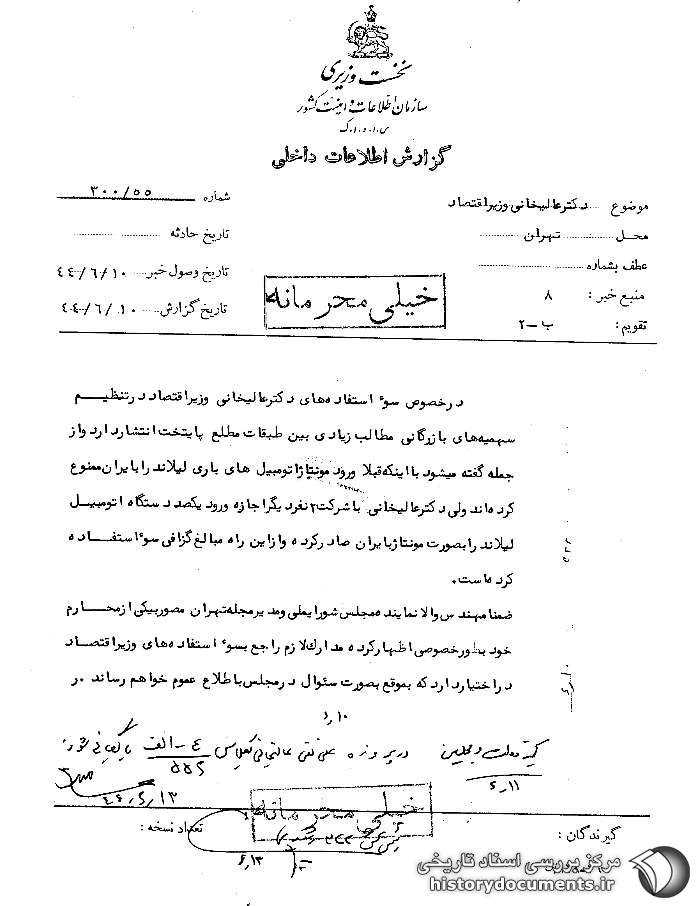 نخست وزیری
سازمان اطلاعات و امنیت کشور
س.ا.و.ا.ک
گزارش اطلاعات داخلی
شماره ۳۰۰/۵۵
موضوع دکترعالیخانی وزیراقتصاد
تاریخ حادثه
محل تهران
عطف بشماره
تاریخ وصول خبر ۴۴/۶/۱۰
منبع خبر : ۸
خیلی محرمانه
تاریخ گزارش ۴۴/۶/۱۰
تقویم : ب-۲
درخصوص سوء استفاده‌های دکترعالیخانی وزیراقتصاد درتنظیم
سهمیه‌های بازرگانی مطالب زیادی بین طبقات مطلع پایتخت انتشاردارد واز
جمله گفته میشود با اینکه قبلا ورود مونتاژ اتومبیل های باری لیلاند را بایران ممنوع
کرده‌اند ولی دکترعالیخانی با شرکت ۲ نفردیگر اجازه ورود یکصد دستگاه اتومبیل
لیلاند را بصورت مونتاژ بایران صادر کرده و از این راه مبالغ گزافی سوء استفاده
کرده است.
ضمنا مهندس والا نماینده مجلس شورایملی ومدیر مجله تهران مصور بیکی از محارم
خود بطورخصوصی اظهارکرده مدارک لازم راجع بسوء استفاده‌های وزیراقتصاد
در اختیار دارد که بموقع بصورت سئوال درمجلس باطلاع عموم خواهم رساند. ر
۶/۱۰
۶/۱۱
۵۵۲
۴۴/۶/۱۳
خیلی محرمانه
گیرندگان :
تعداد نسخه :
۶/۱۳
مرکز بررسی اسناد تاریخی
historydocuments.ir